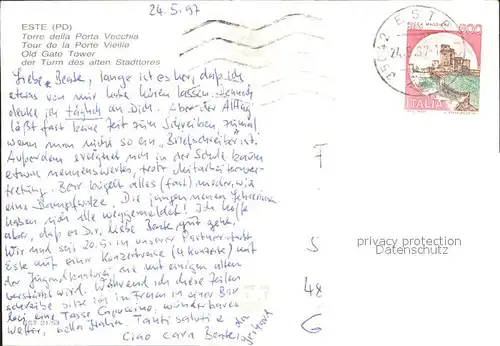 24.5.97
ESTE (PD)
Torre della Porta Vecchia
Tour de la Porte Vieille
Old Gate Tower
der Turm des alten Stadttores
Liebe Beate, lange ist es her, daß ich
etwas von mir habe hören lassen. Dennoch
denke ich täglich an Dich. Aber der Alltag
läßt fast keine Zeit zum Schreiben, zumal
wenn man nicht so ein „Briefschreiber“ ist.
Außerdem ereignet sich in der Schule kaum
etwas nennenswertes, trotz Mitarbeiterver-
tretung. Bär bügelt alles (fast) nieder, wie
eine Dampfwalze. Die jungen neuen Lehrerinnen
haben sich alle weggemeldet! Ich hoffe
aber, daß es Dir, liebe Beate, gut geht.
Wir sind seit 20.5. in unserer Partnerstadt
Este auf einer Konzertreise (4 Konzerte) mit
der Jugendkantorei, die mit einigen alten
verstärkt wird. Während ich diese Zeilen
schreibe sitze ich im Freien in einer Bar
bei einer Tasse Capuccino, wunderbares
Wetter, bella Italia. Tanti saluti e
Ciao cara Beate
F
S
48
G
35042 ESTE
24.5.97
ROCCA MAGGIORE
800
ITALIA
privacy protection
Datenschutz